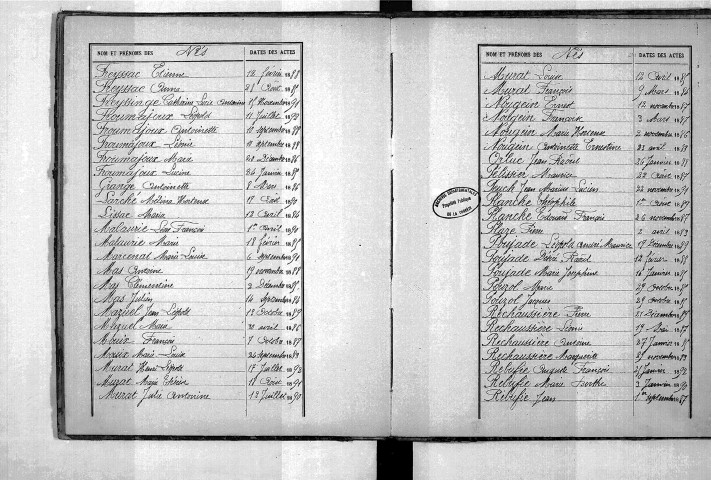 NOM ET PRÉNOMS DES Nés DATES DES ACTES
Freyssac Etienne 12 février 1888
Freyssac Anna 28 Août 1885
Freyssinge Catherine Lucie Antonine 15 novembre 1891
Froumajoux Léopold 11 Juillet 1890
Froumajoux Antoinette 10 septembre 1888
Froumajoux Léonie 10 septembre 1888
Froumajoux Marie 20 Décembre 1886
Froumajoux Lucine 26 Janvier 1885
Grange Antoinette 8 Mars 1886
Larché Mélina Hortense 17 Août 1890
Lissac Marie 13 avril 1886
Malaurie Léon François 1er avril 1890
Malaurie Marie 18 février 1885
Marcenat Marie Louise 6 septembre 1891
Mas Antoine 19 novembre 1888
Mas Clémentine 3 Décembre 1885
Mas Julien 14 septembre 1886
Mazuel Jean Léopold 13 Octobre 1889
Mazuel Marie 20 avril 1886
Meux François 7 Octobre 1887
Meaux Marie Louise 26 septembre 1889
Murat Henri Léopold 17 Juillet 1892
Murat Marie 11 Août 1891
Murat Julie Antonine 13 Juillet 1890
NOM ET PRÉNOMS DES Nés DATES DES ACTES
Murat Louise 12 Avril 1885
Murat François 9 Mars 1886
Nougein Ernest 12 novembre 1887
Nougein Francine 3 Mars 1887
Nougein Marie Hortense 2 novembre 1886
Nougein Antoinette Ernestine 23 avril 1888
Orluc Jean Raoul 26 Janvier
Pélissier Maurice 22 Août 1887
Puech Jean Marius Lucien 22 novembre 1891
Planche Théophile 1er Août 1887
Planche Edouard François 26 novembre 1887
Plaze Pierre 2 avril 1889
Poujade Léopold Maurice 17 Décembre 1889
Poujade Raoul 12 février 1888
Poujade Marie Joséphine 16 Janvier 1885
Pouzol Marie 29 Octobre 1885
Pouzol Jacques 29 Octobre 1885
Rechaussière Pierre 21 Décembre 1889
Rechaussière Léonie 19 Mai 1887
Rechaussière Antoine 27 Janvier 1885
Rechaussière Marguerite 25 novembre 1889
Rebufie Auguste François 21 Janvier 1892
Rebufie Marie Berthe 3 Janvier 1890
Rebufie Jean 1er septembre 1887
ARCHIVES DÉPARTEMENTALES
Propriété Publique
DE LA CORRÈZE